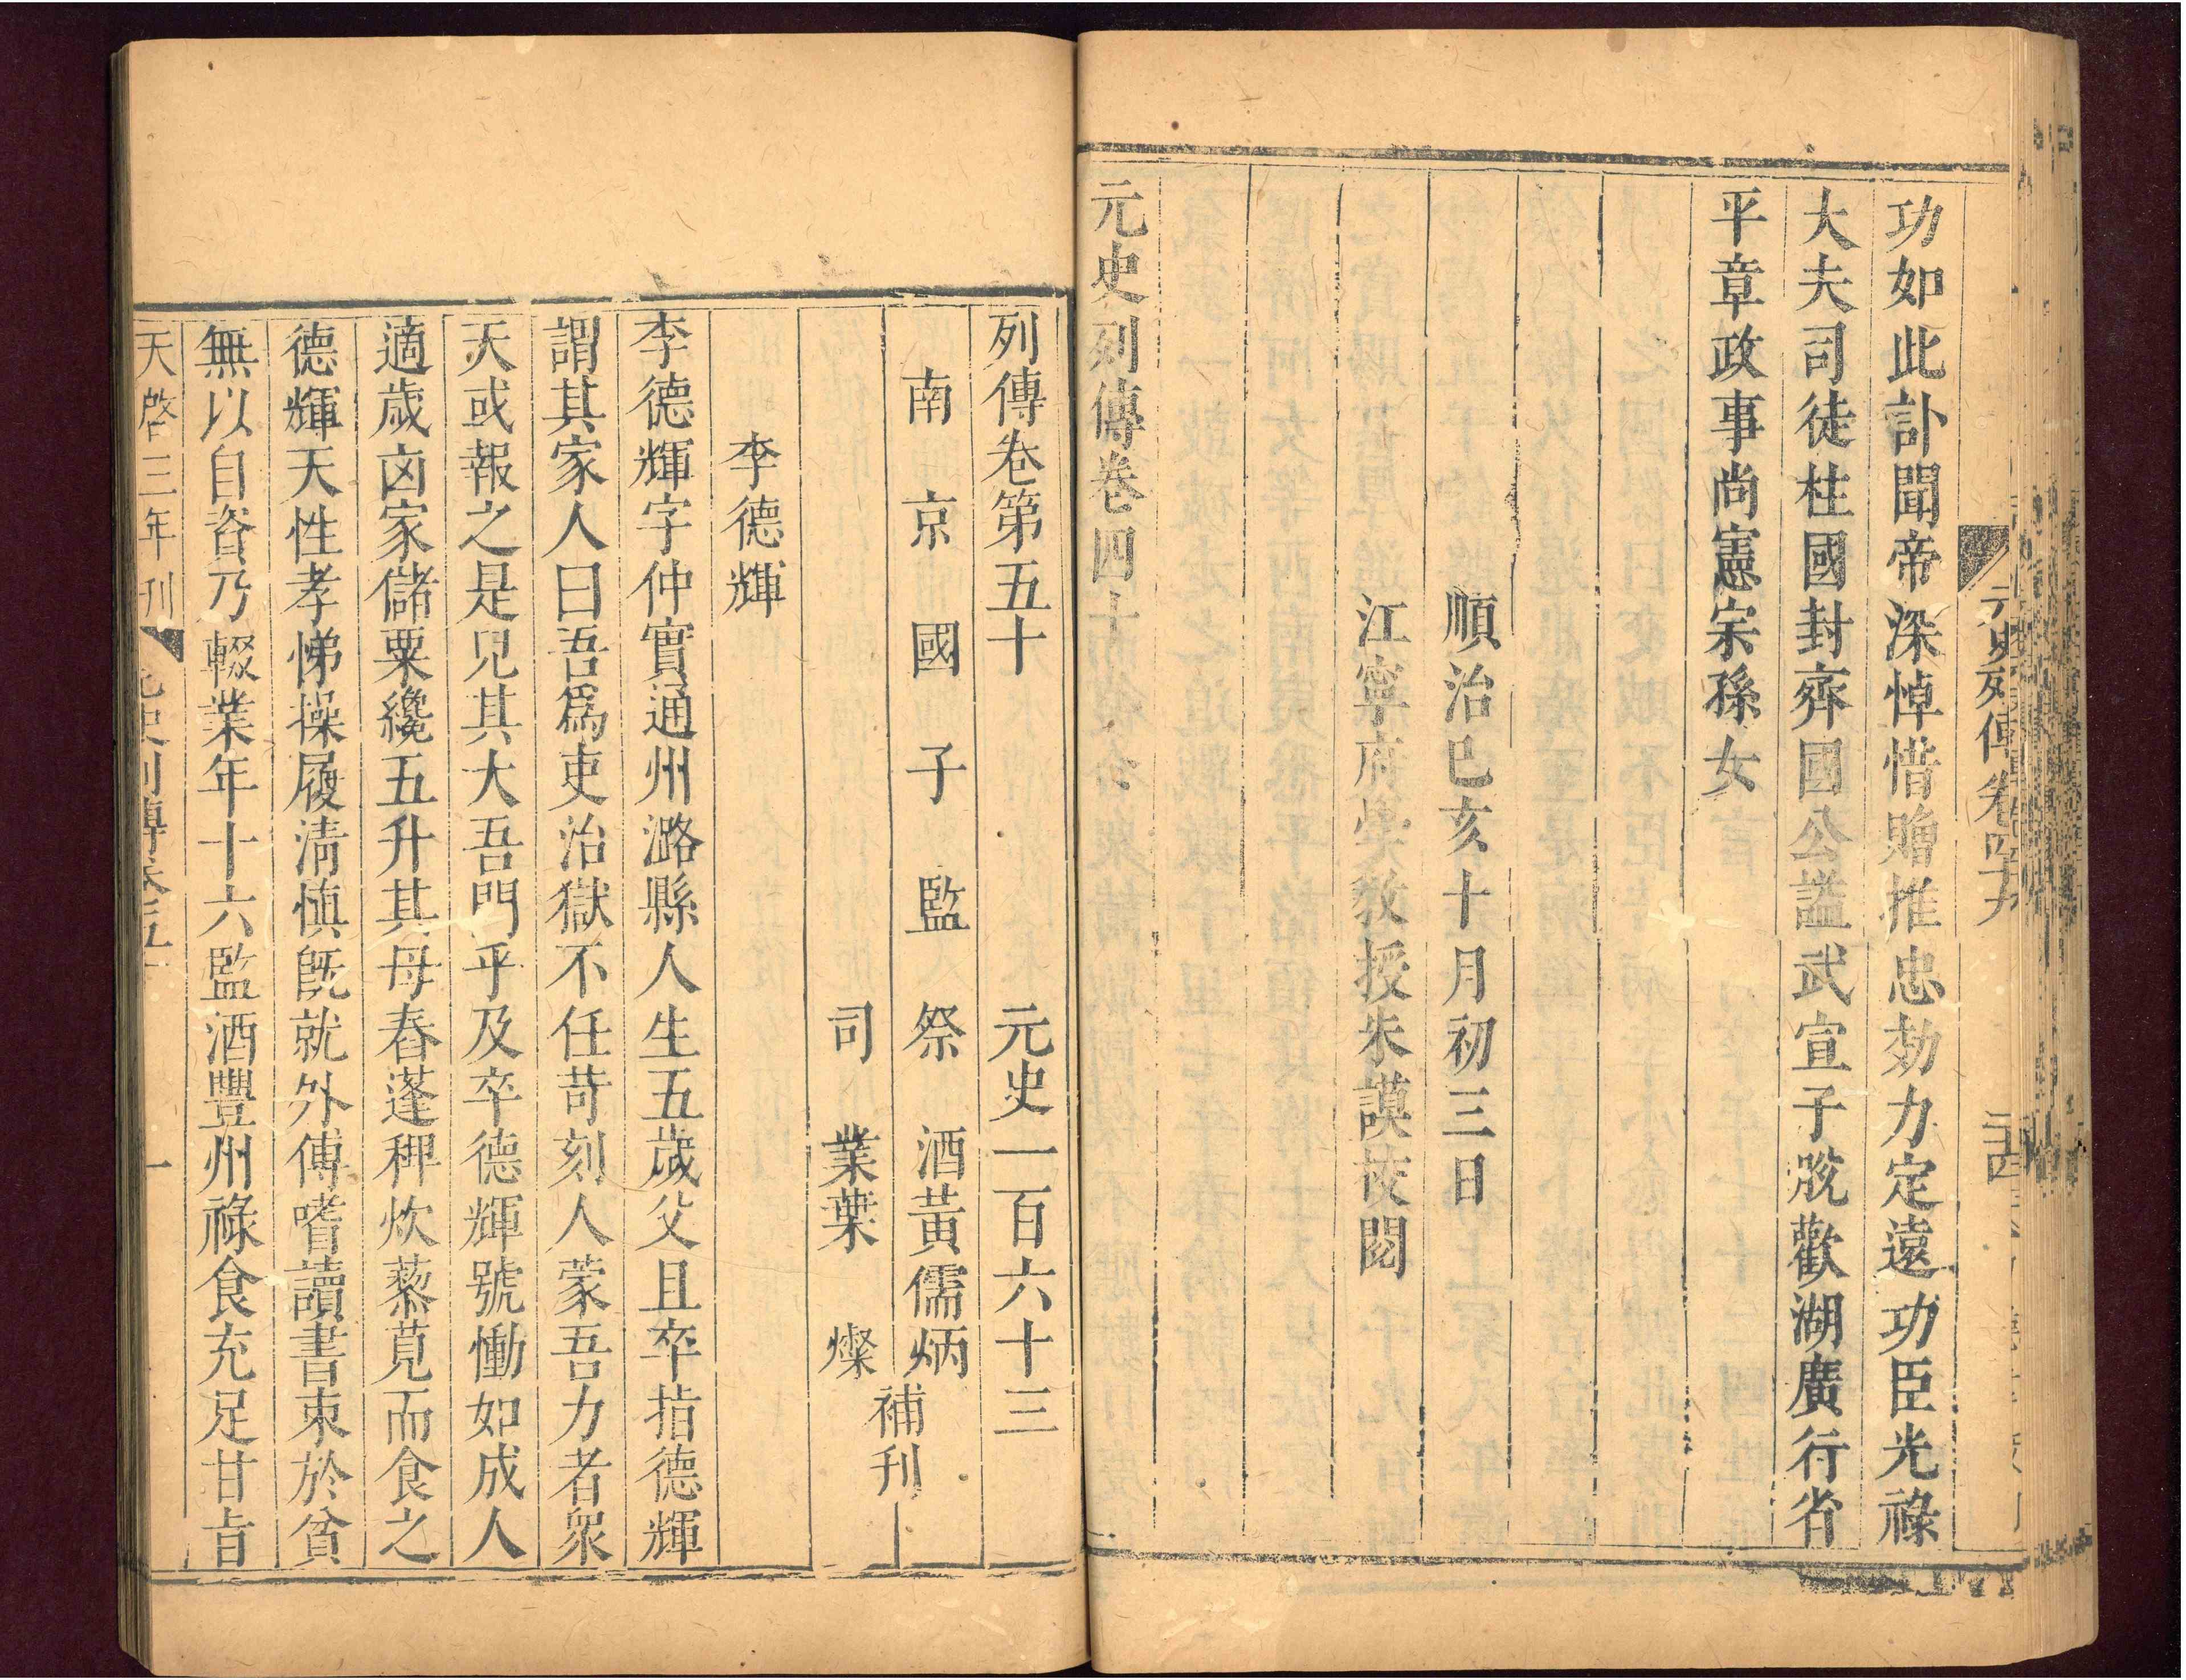 元史列傳卷四十九
功如此訃聞帝深悼惜贈推忠効力定遠功臣光祿
大夫司徒柱國封齊國公謚武宣子脫歡湖廣行省
平章政事尚憲宗孫女
順治己亥十月初三日
江寧府學教授朱謨校閱
元史列傳卷四十
列傳卷第五十 元史一百六十三
南京國子監祭酒黃儒炳
司業葉燦
補刊
李德輝
李德輝字仲實通州潞縣人生五歲父且卒指德輝
謂其家人曰吾爲吏治獄不任苛刻人蒙吾力者衆
天或報之是児其大吾門乎及卒德輝號慟如成人
適歲凶家儲粟纔五升其母舂蓬稗炊藜莧而食之
德輝天性孝悌操履淸慎旣就外傅嗜讀書束於貧
無以自資乃輟業年十六監酒豐州祿食充足甘旨
天啓三年刊 元史列傳卷五十 一